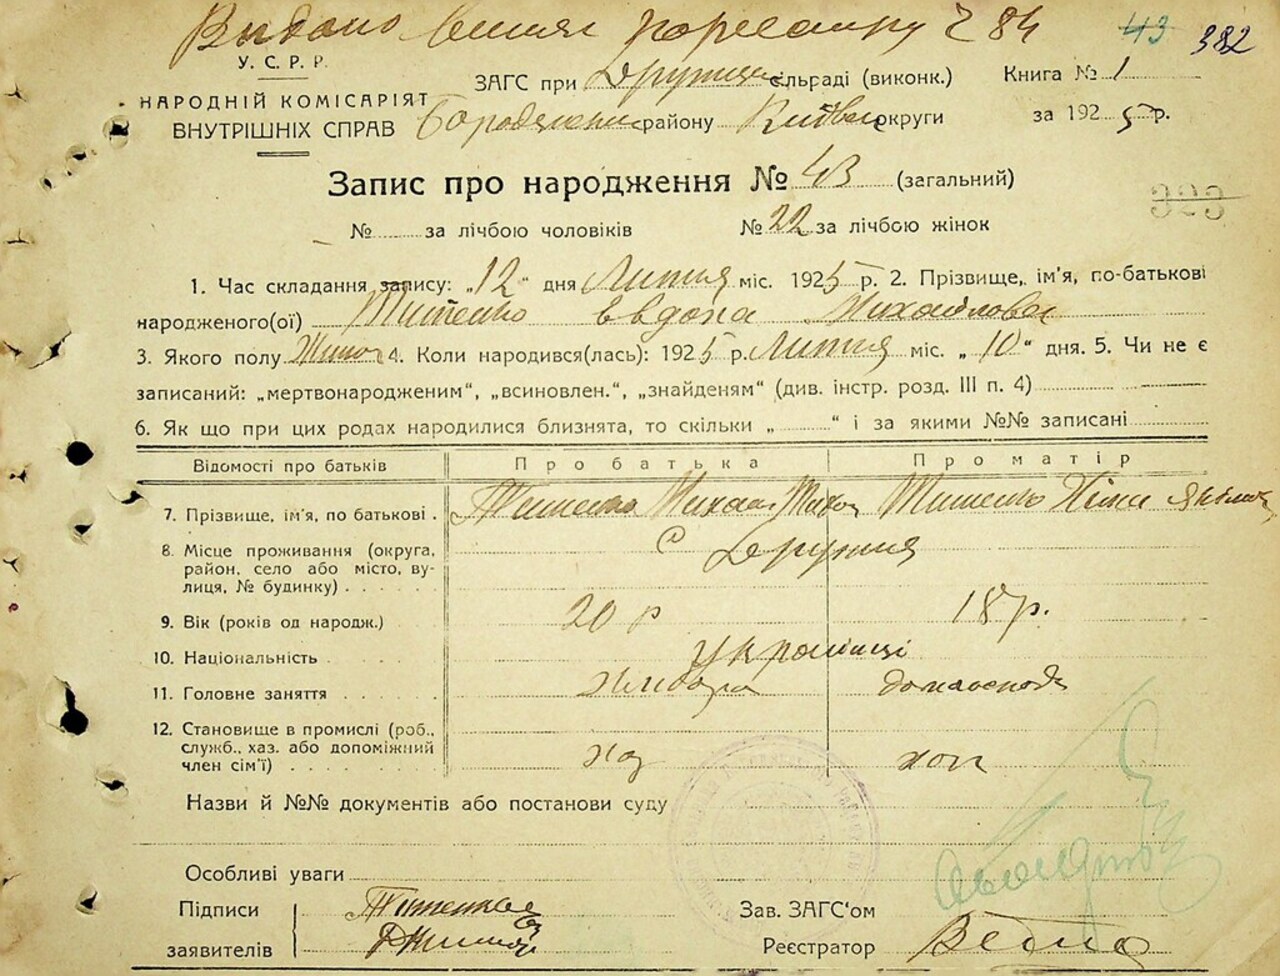 Видано № 84 43 382
У. С. Р. Р.
НАРОДНІЙ КОМІСАРІЯТ
ВНУТРІШНІХ СПРАВ
ЗАГС при Дружня сільраді (виконк.) Книга № 1
району округи за 1925 р.
Запис про народження № 43 (загальний)
323
№ за лічбою чоловіків № 22 за лічбою жінок
1. Час складання запису: „12“ дня Липня міс. 1925 р. 2. Прізвище, ім'я, по-батькові
народженого(ої) Титенко Евдоха Михайловна
3. Якого полу Жіноч 4. Коли народився(лась): 1925 р. Липня міс. „10“ дня. 5. Чи не є
записаний: „мертвонародженим“, „всиновлен.“, „знайденям“ (див. інстр. розд. III п. 4)
6. Як що при цих родах народилися близнята, то скільки „ “ і за якими №№ записані
Відомості про батьків Про батька Про матір
7. Прізвище, ім'я, по батькові. Титенко Михайл Титенко
8. Місце проживання (округа, район, село або місто, вулиця, № будинку) с Дружня
9. Вік (років од народж.) 20 р 18 р.
10. Національність Українці
11. Головне заняття Хлібороб домашення
12. Становище в промислі (роб., служб., хаз. або допоміжний член сім'ї) хаз
Назви й №№ документів або постанови суду
Особливі уваги
Підписи Титенко Зав. ЗАГС'ом
заявителів Реєстратор